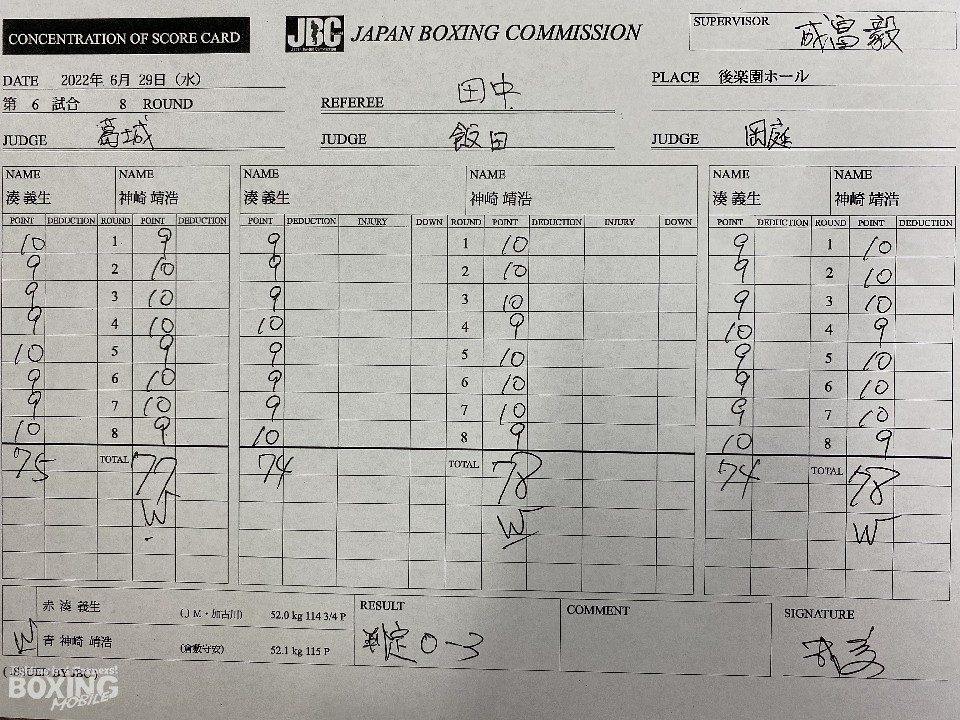 CONCENTRATION OF SCORE CARD
JBC JAPAN BOXING COMMISSION
SUPERVISOR 成富 毅
DATE 2022年 6月 29日（水）
PLACE 後楽園ホール
第 6 試合 8 ROUND
REFEREE 田中
JUDGE 葛城
JUDGE 飯田
JUDGE 岡庭
NAME NAME NAME NAME NAME NAME
湊 義生 神崎 靖浩 湊 義生 神崎 靖浩 湊 義生 神崎 靖浩
POINT DEDUCTION ROUND POINT DEDUCTION POINT DEDUCTION INJURY DOWN ROUND POINT DEDUCTION INJURY DOWN POINT DEDUCTION ROUND POINT DEDUCTION
10 1 9 9 1 10 9 1 10
9 2 10 9 2 10 9 2 10
9 3 10 9 3 10 9 3 10
9 4 10 10 4 9 10 4 9
10 5 9 9 5 10 9 5 10
9 6 10 9 6 10 9 6 10
9 7 10 9 7 10 9 7 10
10 8 9 10 8 9 10 8 9
75 TOTAL 77 74 TOTAL 78 74 TOTAL 78
W W W
赤 湊 義生 （ＪＭ・加古川） 52.0 kg 114 3/4 P
W 青 神崎 靖浩 （倉敷守安） 52.1 kg 115 P
RESULT
判定 0-3
COMMENT
SIGNATURE
(ISSUED BY JBC)
BOXING
MOBILE